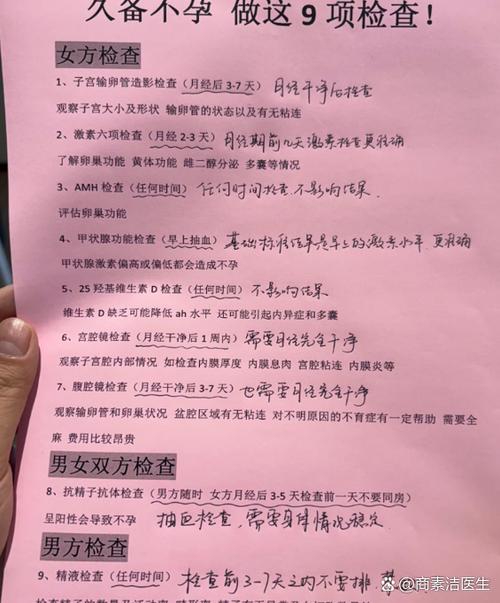 久备不孕 做这9项检查！
女方检查
1、子宫输卵管造影检查（月经后3-7天） 月经干净后检查
观察子宫大小及形状 输卵管的状态以及有无粘连
2、激素六项检查（月经2-3天） 月经期前几天激素检查更准确
了解卵巢功能 黄体功能 雌二醇分泌 多囊等情况
3、AMH检查（任何时间） 任何时间检查.不影响结果.
评估卵巢功能
4、甲状腺功能检查（早上抽血） 基础标准结果是早上的激素水平.更准确
甲状腺激素偏高或偏低都会造成不孕
5、25羟基维生素D检查（任何时间） 不影响结果
维生素D缺乏可能降低ah水平 还可能引起内异症和多囊
6、宫腔镜检查（月经干净后1周内） 需要月经完全干净
观察子宫腔内部情况 如检查内膜厚度 内膜息肉 宫腔粘连 内膜炎等
7、腹腔镜检查（月经干净后3-7天） 也需要月经完全干净
观察输卵管和卵巢状况 盆腔区域有无粘连 对不明原因的不育症有一定帮助 需要全
麻 费用比较昂贵
男女双方检查
8、抗精子抗体检查（男方随时 女方月经后3-5天检查前一天不要同房）
呈阳性会导致不孕 抽血检查,需要身体情况稳定.
男方检查
9、精液检查（任何时间） 检查前3-7天之内不要排
商素洁医生